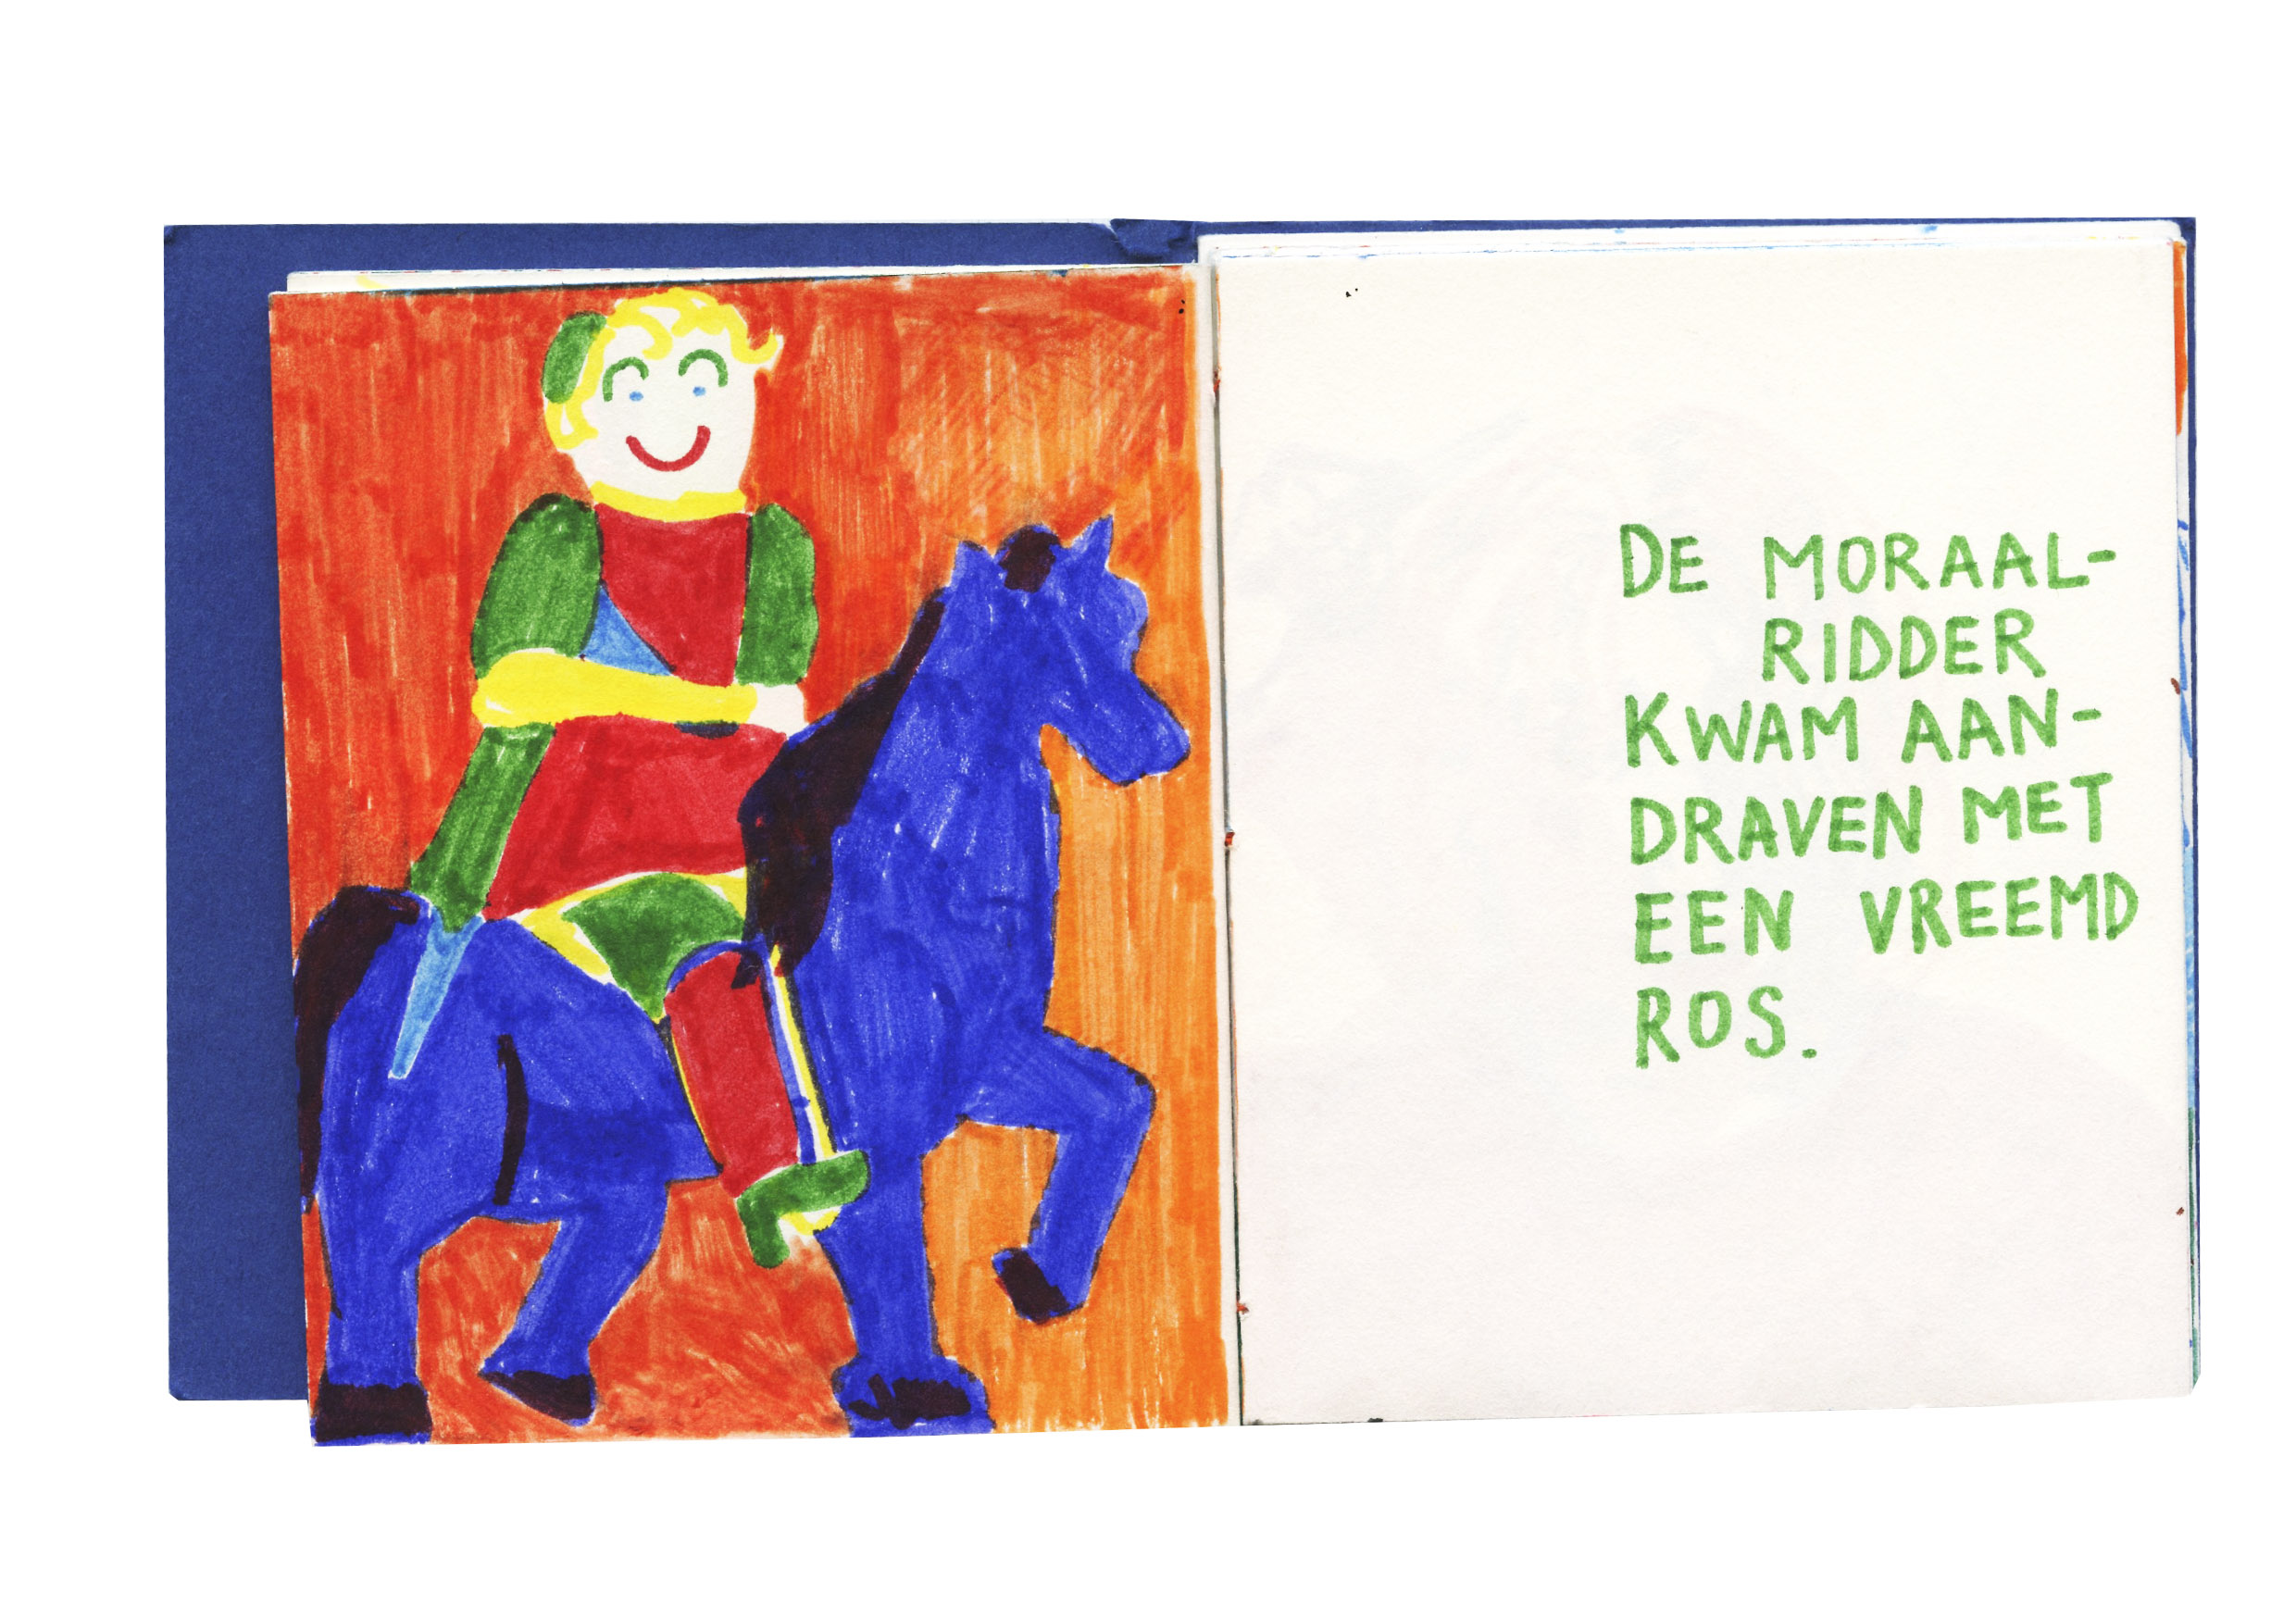 DE MORAAL-
RIDDER
KWAM AAN-
DRAVEN MET
EEN VREEMD
ROS.